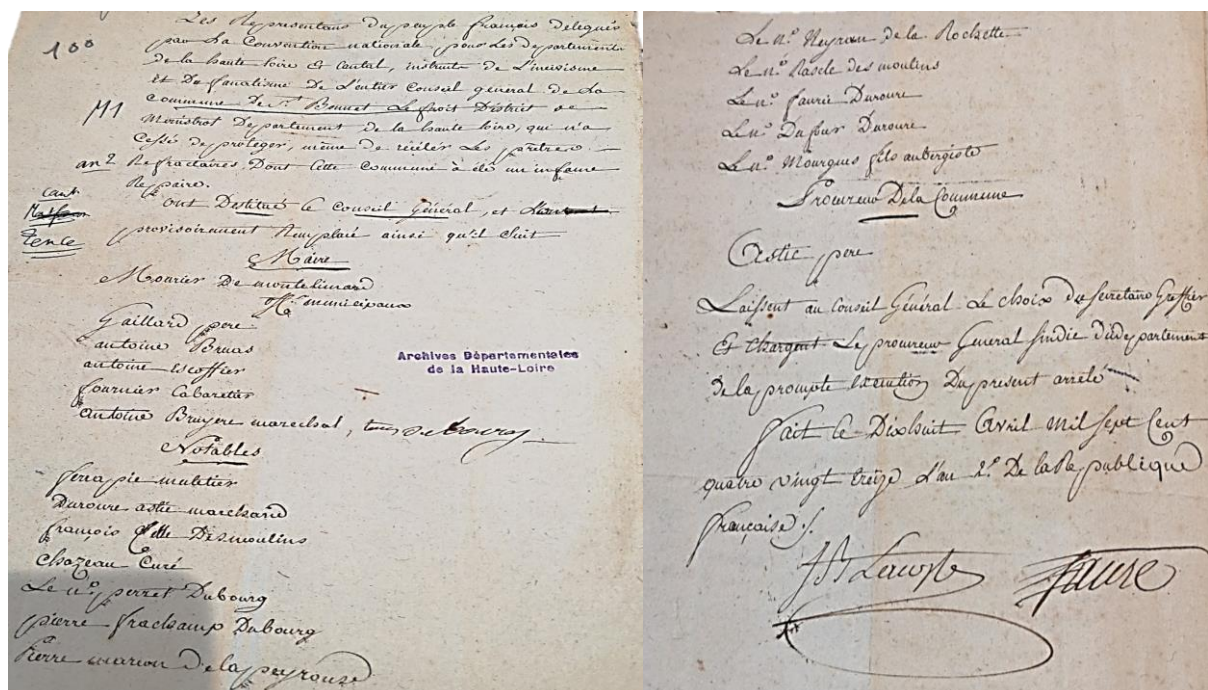 100
Les Representans du peuple français délegués
par La Convention nationale, pour Les departements
de la haute loire et Cantal, instruits de L'incivisme
et Du fanatisme De L'entier Conseil général de La
Commune De St Bonnet Le froit District de
M1
Monistrol Departement de la haute loire, qui n'a
Cessé de protéger, même de recéler Les prêtres
an 2
Refractaires Dont Cette Commune à été un infame
Repaire.
cant
Tence
ont Destitué le Conseil Général, et
provisoirement Remplacé ainsi qu'il Suit
Maire
Mourier De montelimard
Off. municipaux
Gaillard pere
antoine Bruas
antoine Escoffier
fournier Cabaretier
antoine Bruyere marechal, tous du bourg
Archives Départementales
de la Haute-Loire
Notables
muletier
Duroure astic marchand
françois Desmoulins
Chazeau Curé
Le n.é perret Dubourg
pierre frachamp Dubourg
Pierre marion De la peyrouse
Le n.é Neyran de la Rochette
Le n.é Rascle des moulins
Le n.é faurie Duroure
Le n.é Dufour Duroure
Le n.é Mourgues fils aubergiste
Procureur De la Commune
Astic pere
Laissent au Conseil Général Le choix du Secretaire Greffier
Et chargent Le procureur General Sindic du departement
de la prompte execution Du present arrêté
fait le Dixhuit Avril mil sept Cent
quatre vingt treize L'an 2e De la Republique
française ./.
JB Lacoste faure